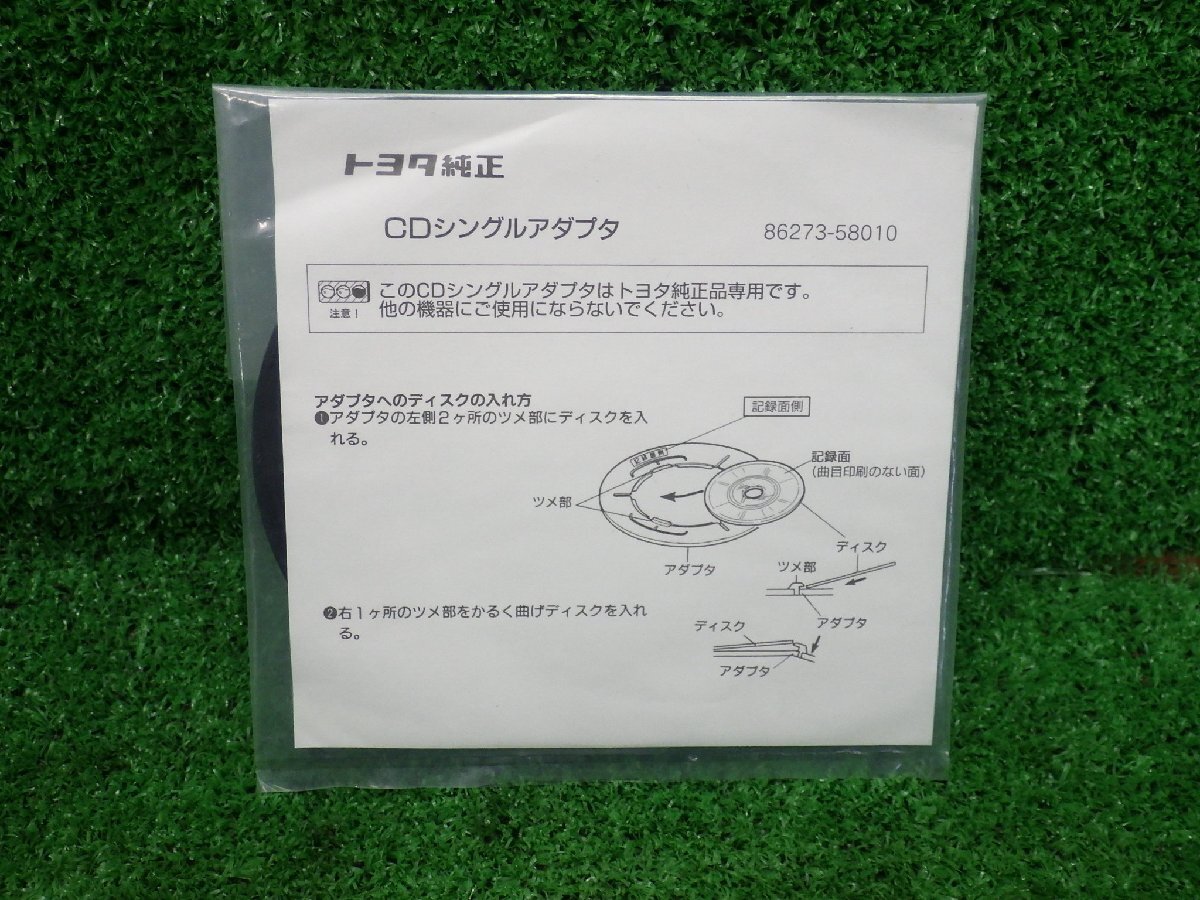 トヨタ純正
CDシングルアダプタ
86273-58010
このCDシングルアダプタはトヨタ純正品専用です。
注意！
他の機器にご使用にならないでください。
アダプタへのディスクの入れ方
❶アダプタの左側2ヶ所のツメ部にディスクを入
れる。
記録面側
記録面側
記録面
(曲目印刷のない面)
ツメ部
ディスク
アダプタ
ツメ部
アダプタ
❷右1ヶ所のツメ部をかるく曲げディスクを入れ
る。
ディスク
アダプタ